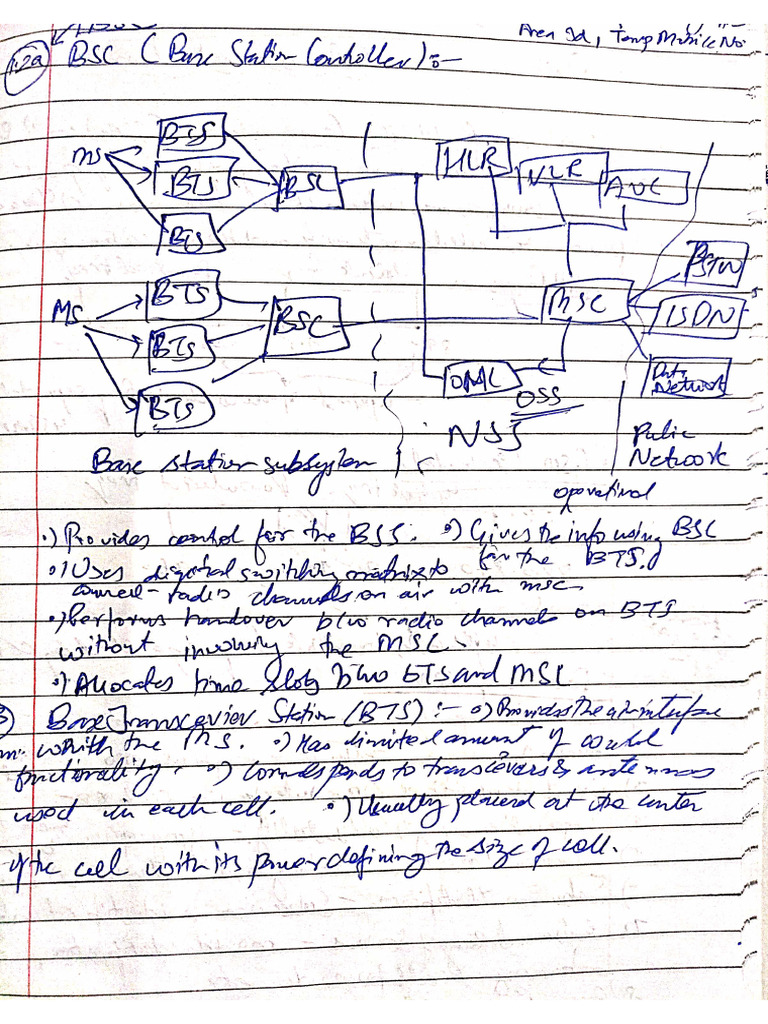 Area Id, Temp Mobile No
1.2a BSC (Base Station Controller) :-
BTS
MS BTS BSC HLR VLR AUC
BTS
PSTN
MS BTS BSC MSC ISDN
BTS OMC Data Network
BTS OSS
NSS Public Network
Base Station subsystem
operational
•) Provides control for the BSS. •) Gives the info using BSC for the BTS.
•) Uses digital switching matrix to
connect radio channels on air with MSC
•) Performs handover b/w radio channels on BTS
without involving the MSC.
•) Allocates time slots b/w BTS and MSC
3) Base Transceiver Station (BTS) :- •) Provides the air interface
with the MS. •) Has limited amount of
functionality. •) Corresponds to transceivers & antennas
used in each cell. •) Usually placed at the center
of the cell with its power defining the size of cell.